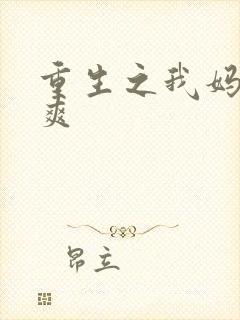 重生之我妈
爽
昂立